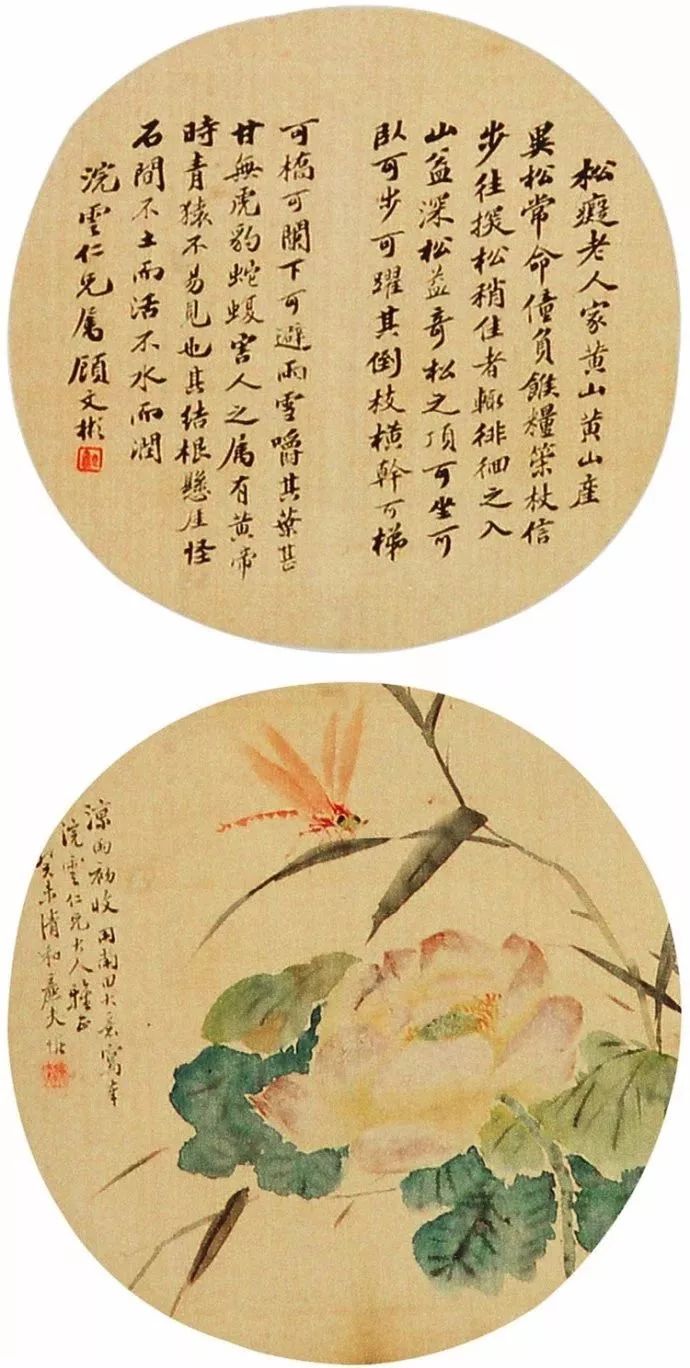 松癡老人家黄山黄山産
異松常命僮負餱糧策杖信
步往探松稍佳者輒徘徊之入
山益深松益奇松之頂可坐可
臥可步可躍其倒枝橫幹可梯
可橋可關下可避雨雪嚼其葉甚
甘無虎豹蛇蝮害人之属有黄帝
時青猿不易見也其结根懸崖怪
石間不土而活不水而潤
浣雲仁兄属顧文彬
凉雨初收用南田大意寫奉
浣雲仁兄大人雅正
癸未清和廉夫